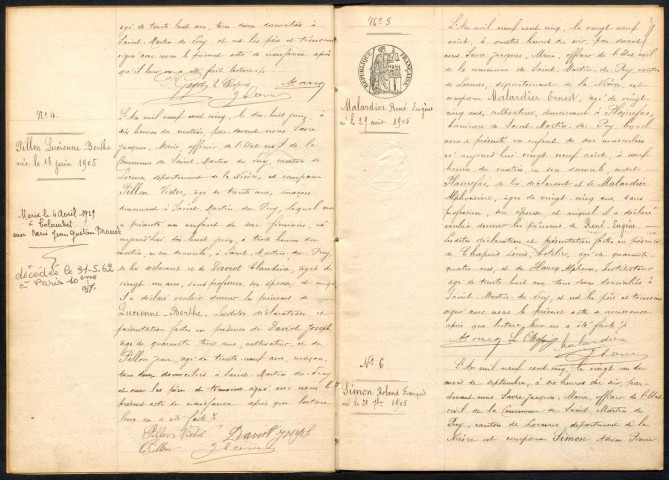 agé de trente huit ans, tous deux domiciliés à
Saint-Martin du Puy et ont les père et témoins
signé avec nous le présent acte de naissance après
qu'il leur en a été fait lecture
Nº 4
Pillon Lucienne Berthe
née le 18 juin 1905
Mariée le 4 avril 1929
à Colombes
avec
décédée le 31.5.62
à Paris 10ème
L'An mil neuf cent cinq, le dix huit juin, à
dix heures du matin, par devant nous Save
Jacques, Maire, officier de l'état civil de la
Commune de Saint Martin du Puy, canton de
Lormes département de la Nièvre, est comparu
Pillon Victor, âgé de trente ans, maçon
demeurant à Saint Martin du Puy, lequel nous
a présenté un enfant du sexe féminin, né
aujourd'hui dix huit juin, à trois heures du
matin, en son domicile, à Saint Martin du Puy
de lui déclarant et de David Claudine, âgée de
vingt un ans, sans profession, son épouse, et auquel
il a déclaré vouloir donner les prénoms de
Lucienne-Berthe. Lesdites déclaration et
présentation faites en présence de David Joseph
agé de quarante trois ans, cultivateur, et de
Pillon Jean, agé de trente neuf ans, maçon,
tous deux domiciliés à Saint Martin du Puy
et ont les père et témoins signé avec nous le
présent acte de naissance après que lecture
leur en a été faite
Pillon Victor David Joseph
Pillon
Nº 5
RÉPUBLIQUE FRANÇAISE
Malardier René Eugène
né le 29 août 1905
L'An mil neuf cent cinq, le vingt neuf
août, à quatre heures du soir, par devant
nous Save Jacques, Maire, officier de l'état civil
de la commune de Saint-Martin du Puy, canton
de Lormes, département de la Nièvre, est
comparu Malardier Ernest, âgé de vingt-
ans, cultivateur, demeurant à
commune de Saint-Martin du Puy, lequel
nous a présenté un enfant du sexe masculin
né aujourd'hui vingt neuf août, à neuf
heures du matin en son domicile, audit
de lui déclarant et de Malardier
Alphonsine, âgée de vingt cinq ans, sans
profession, son épouse, et auquel il a déclaré
vouloir donner les prénoms de René Eugène.
Lesdites déclaration et présentation faites en présence
de Chapuis Louis, agé de quarante
quatre ans, et de Alphonse, instituteur
agé de ans, tous deux domiciliés à
Saint Martin du Puy, et ont le père et témoins
signé avec nous le présent acte de naissance
après que lecture leur en a été faite
Malardier
Nº 6
Simon Roland François
né le 21 7bre 1905
L'An mil neuf cent cinq, le vingt un du
mois de septembre, à dix heures du soir, par
devant nous Save Jacques, Maire, officier de l'état
civil de la Commune de Saint Martin du
Puy, canton de Lormes, département de la
Nièvre est comparu Simon Adrien Pierre